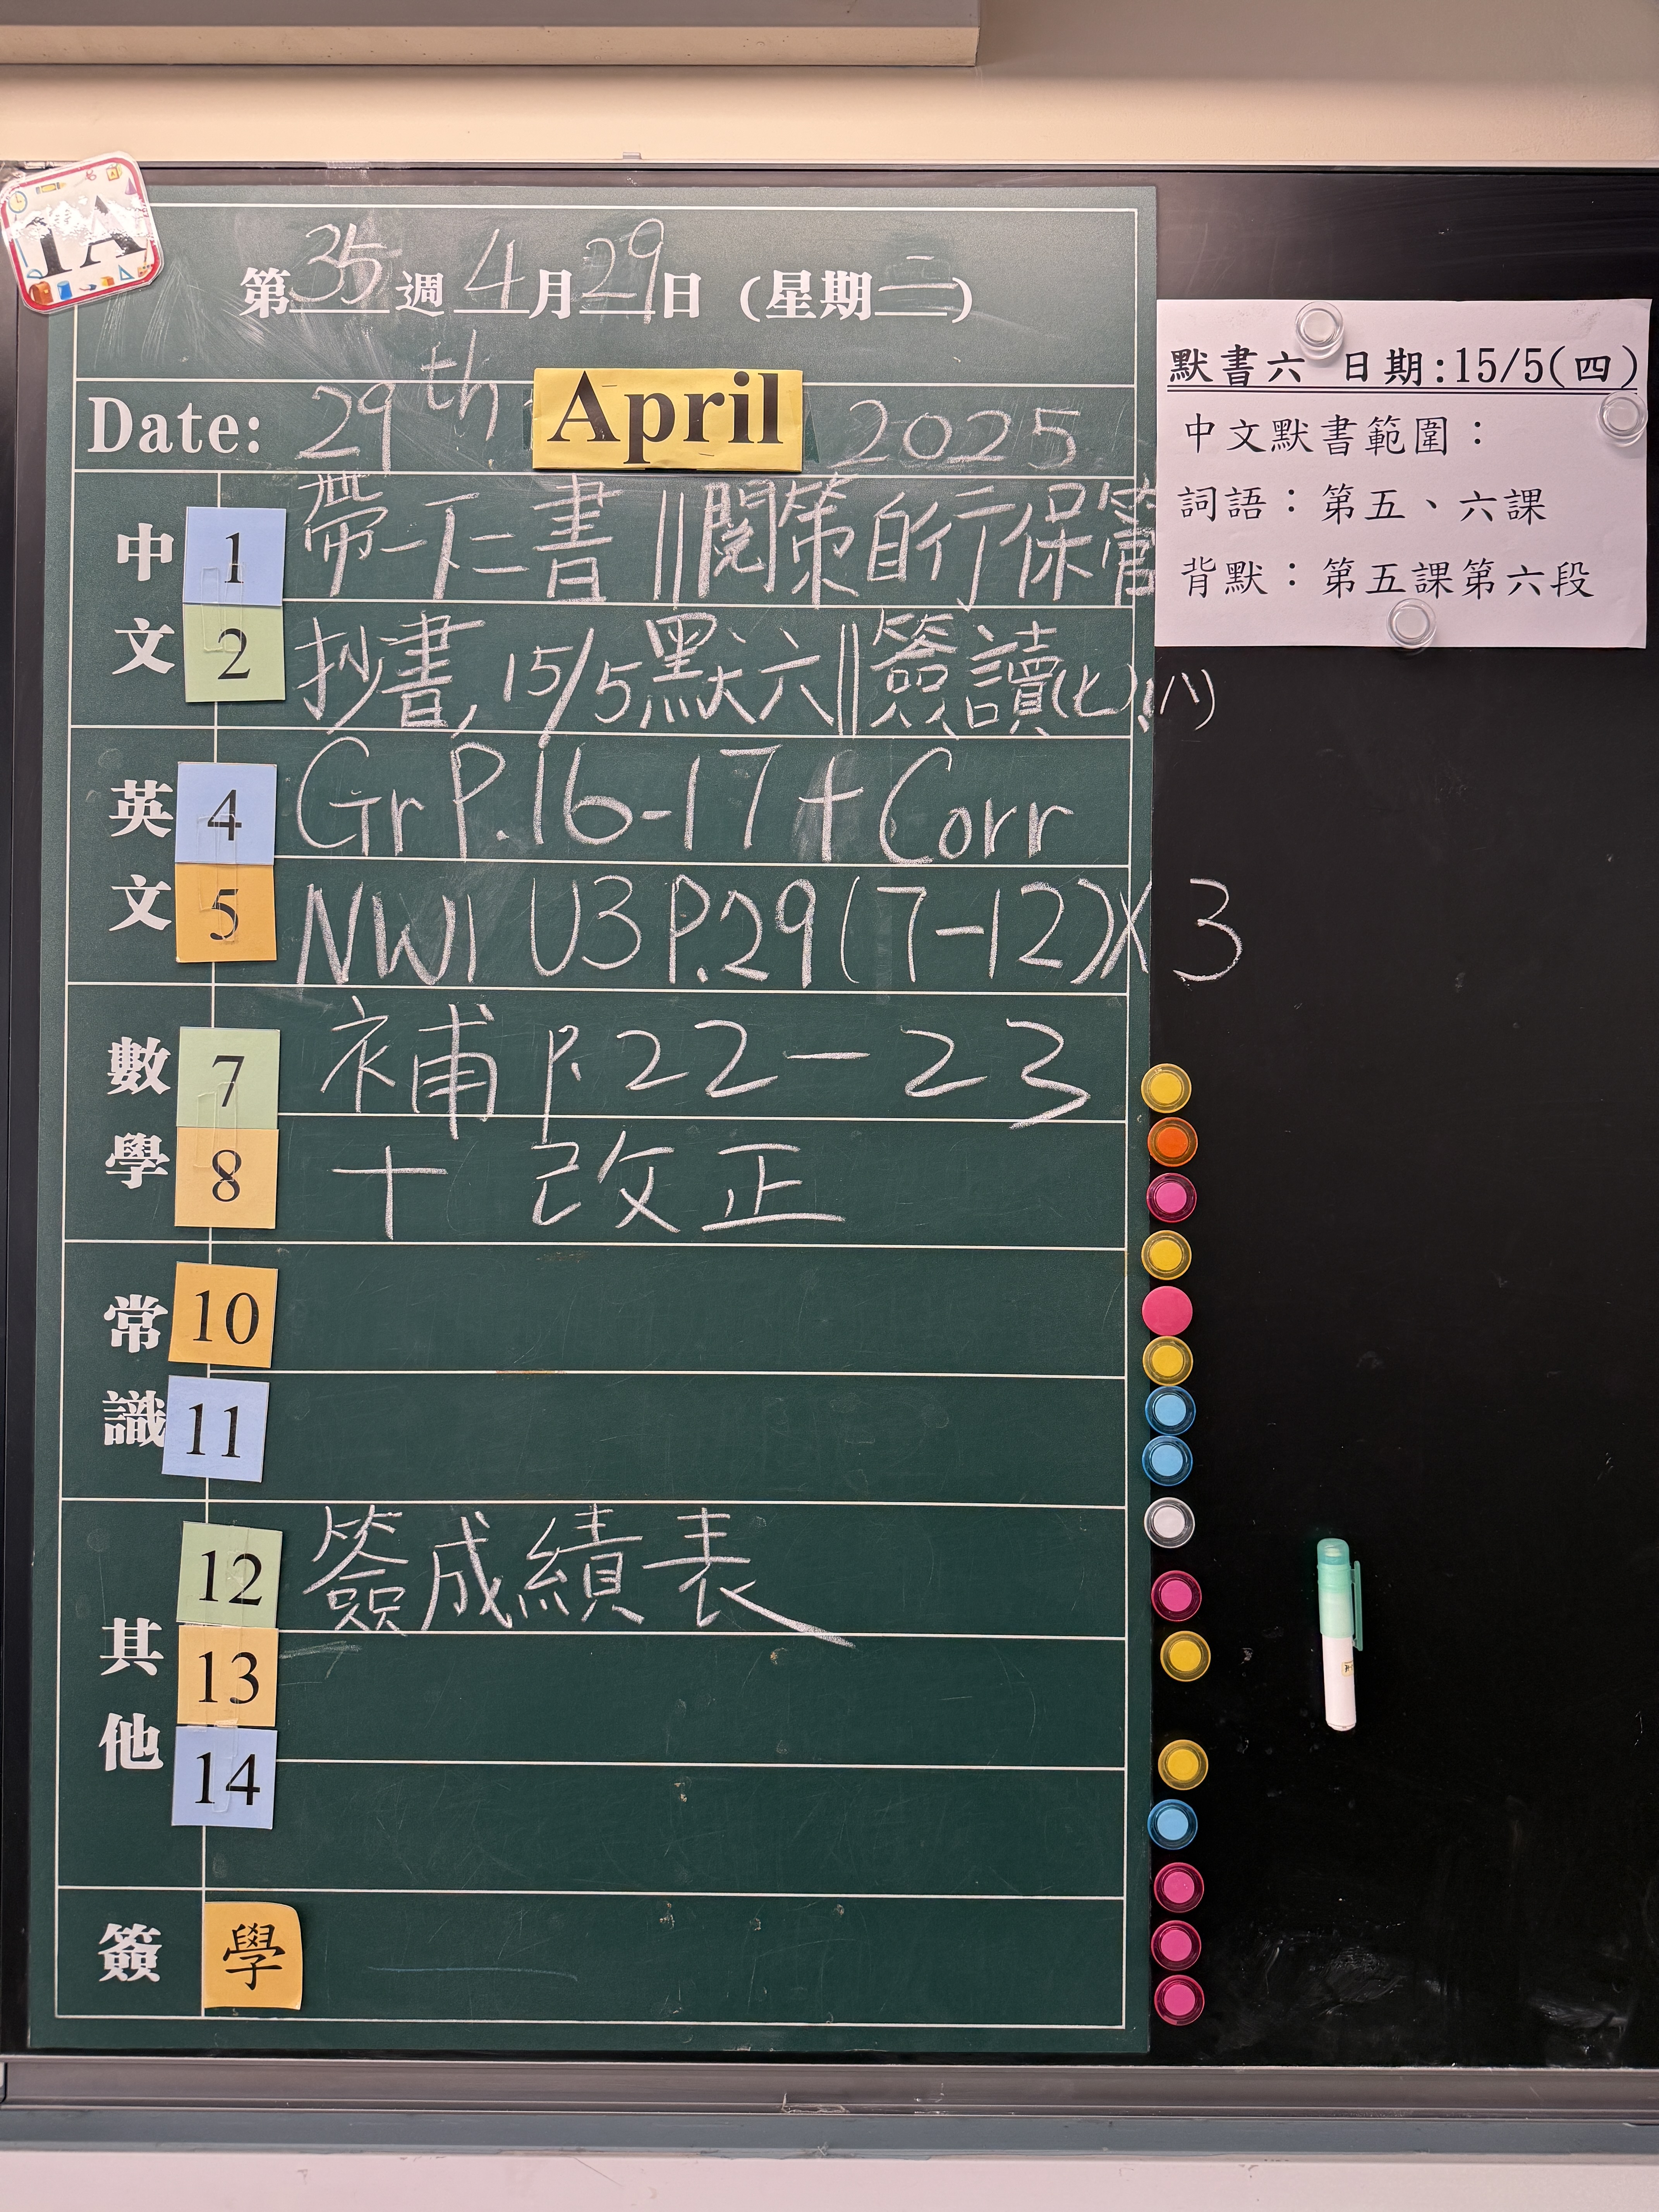 1A
第35週4月29日(星期二)
Date: 29th April 2025
中文
1 帶一下二書||閱策自行保管
2 抄書,15/5默六||簽讀(七),(八)
英文
4 Gr P.16-17 + Corr
5 NW1 U3 P.29(7-12)X3
數學
7 補 P.22-23
8 + 改正
常識
10
11
其他
12 簽成績表
13
14
簽 學
默書六 日期:15/5(四)
中文默書範圍：
詞語：第五、六課
背默：第五課第六段